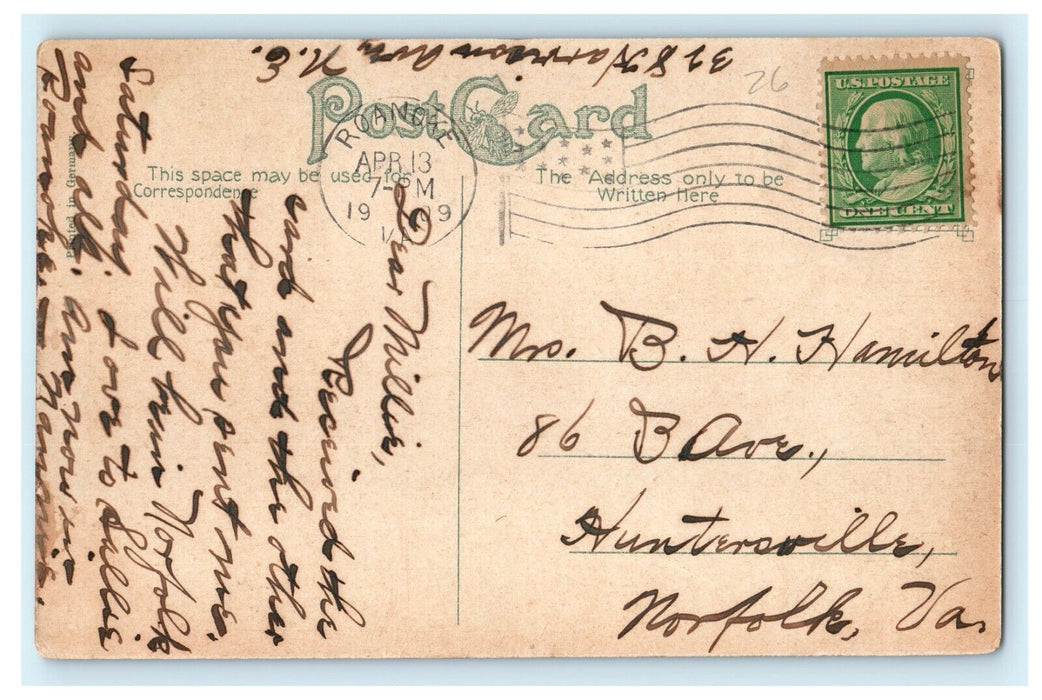 328 Harrison Ave N.E.
26
Post Card
U.S. POSTAGE
ONE CENT
ROANOKE
APR 13
7- PM
19 9
VA
This space may be used for
Correspondence
The Address only to be
Written Here
Printed in Germany
Dear Millie,
Received the
card and the other
that you sent me.
Will leave Norfolk
Saturday. Love to Lillie
and all. Am now in
Roanoke.
Mrs. B. H. Hamilton
86 B Ave.,
Huntersville,
Norfolk, Va.